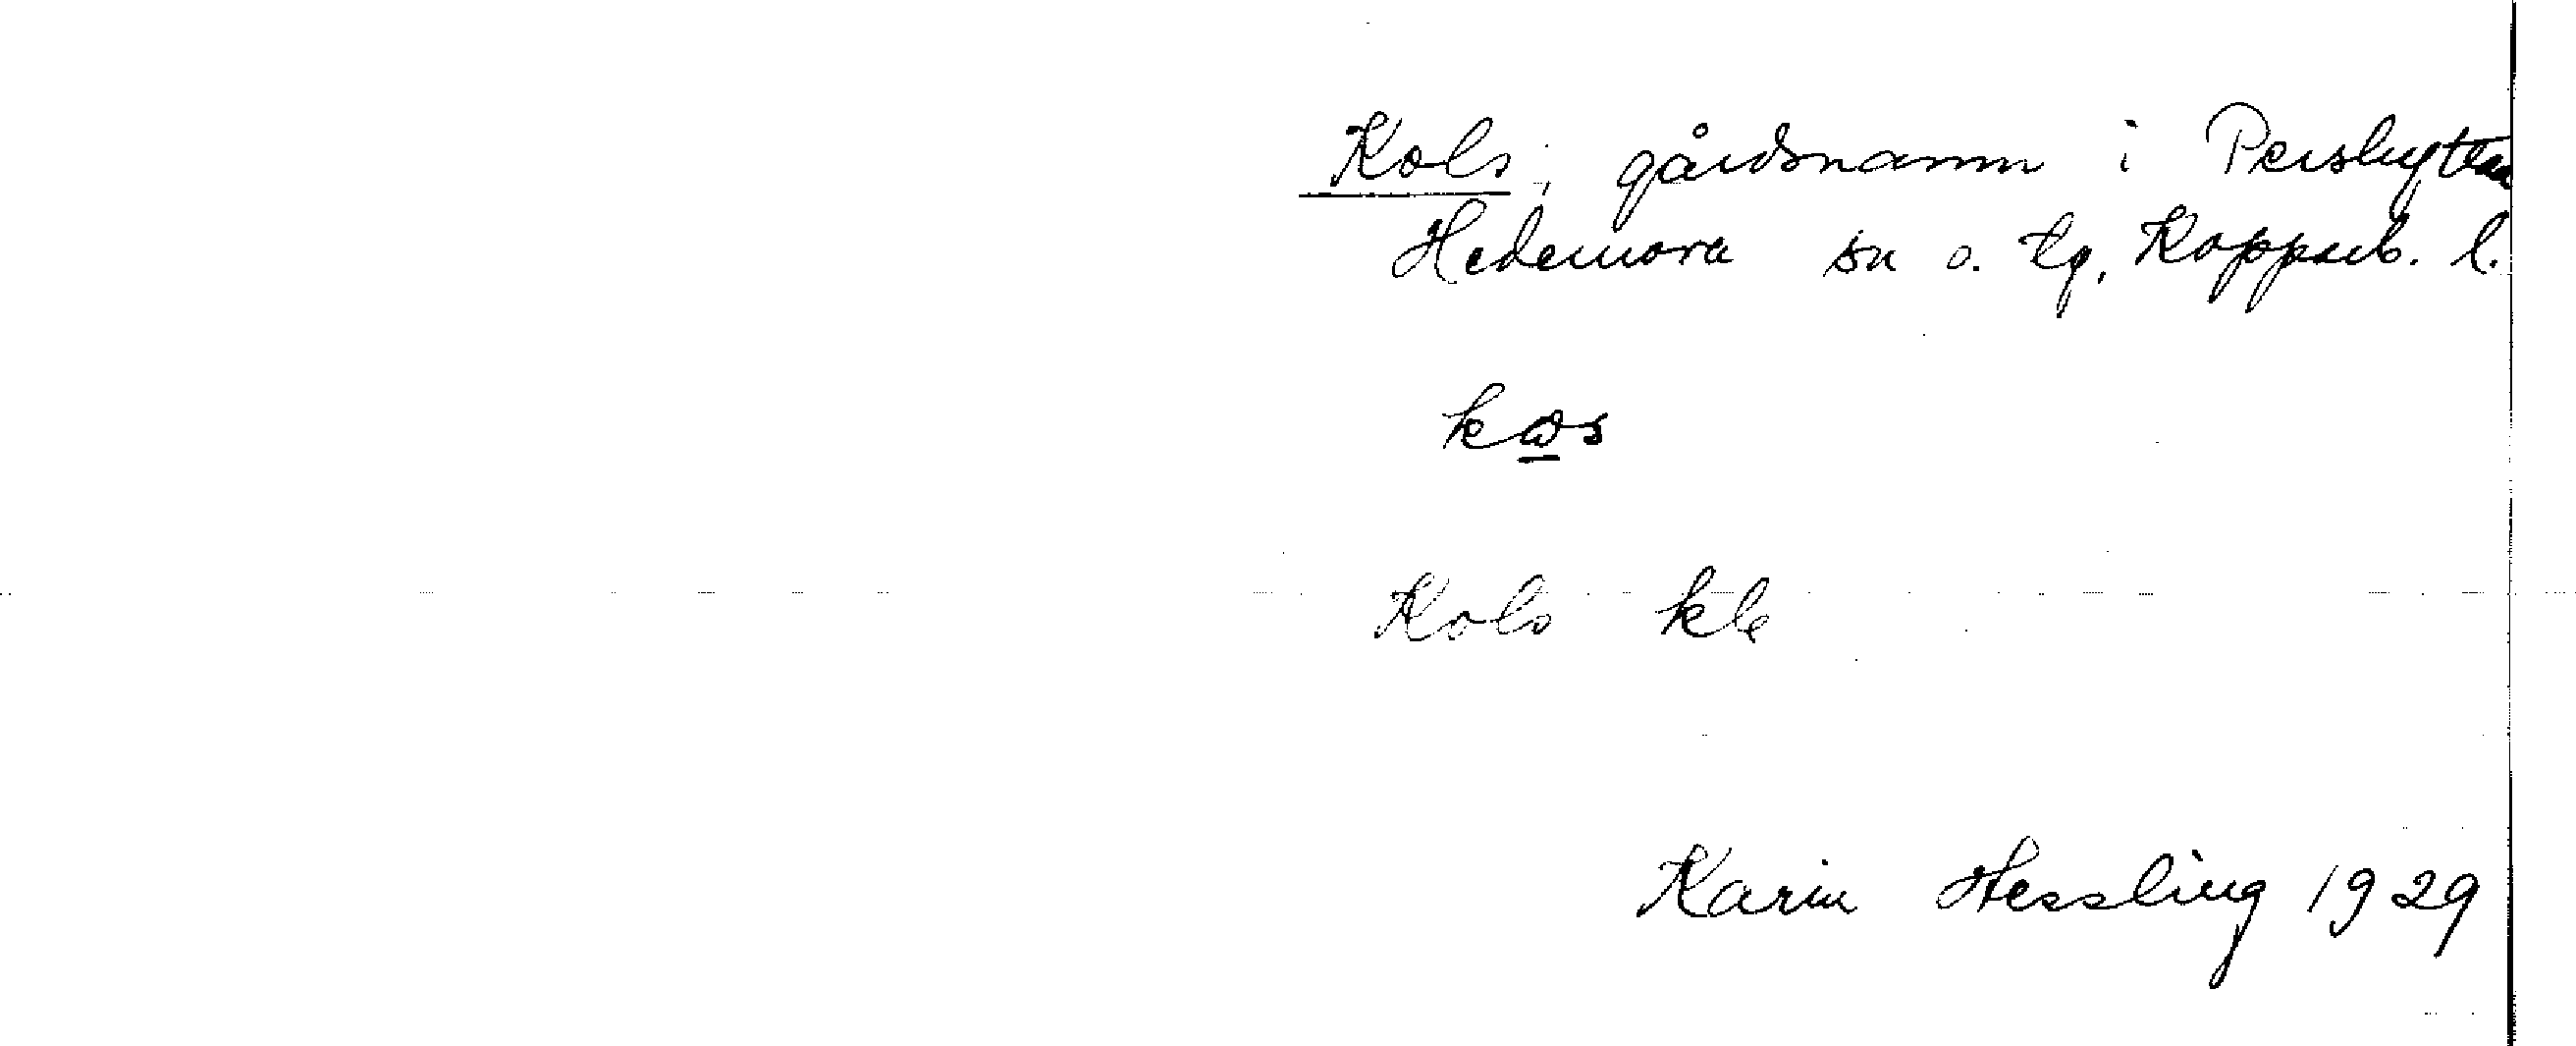 Kols, gårdsnamn i Pershyttan
Hedemora sn o. tg, Kopparb. l.
Kols kle
Karin Hessling 1929